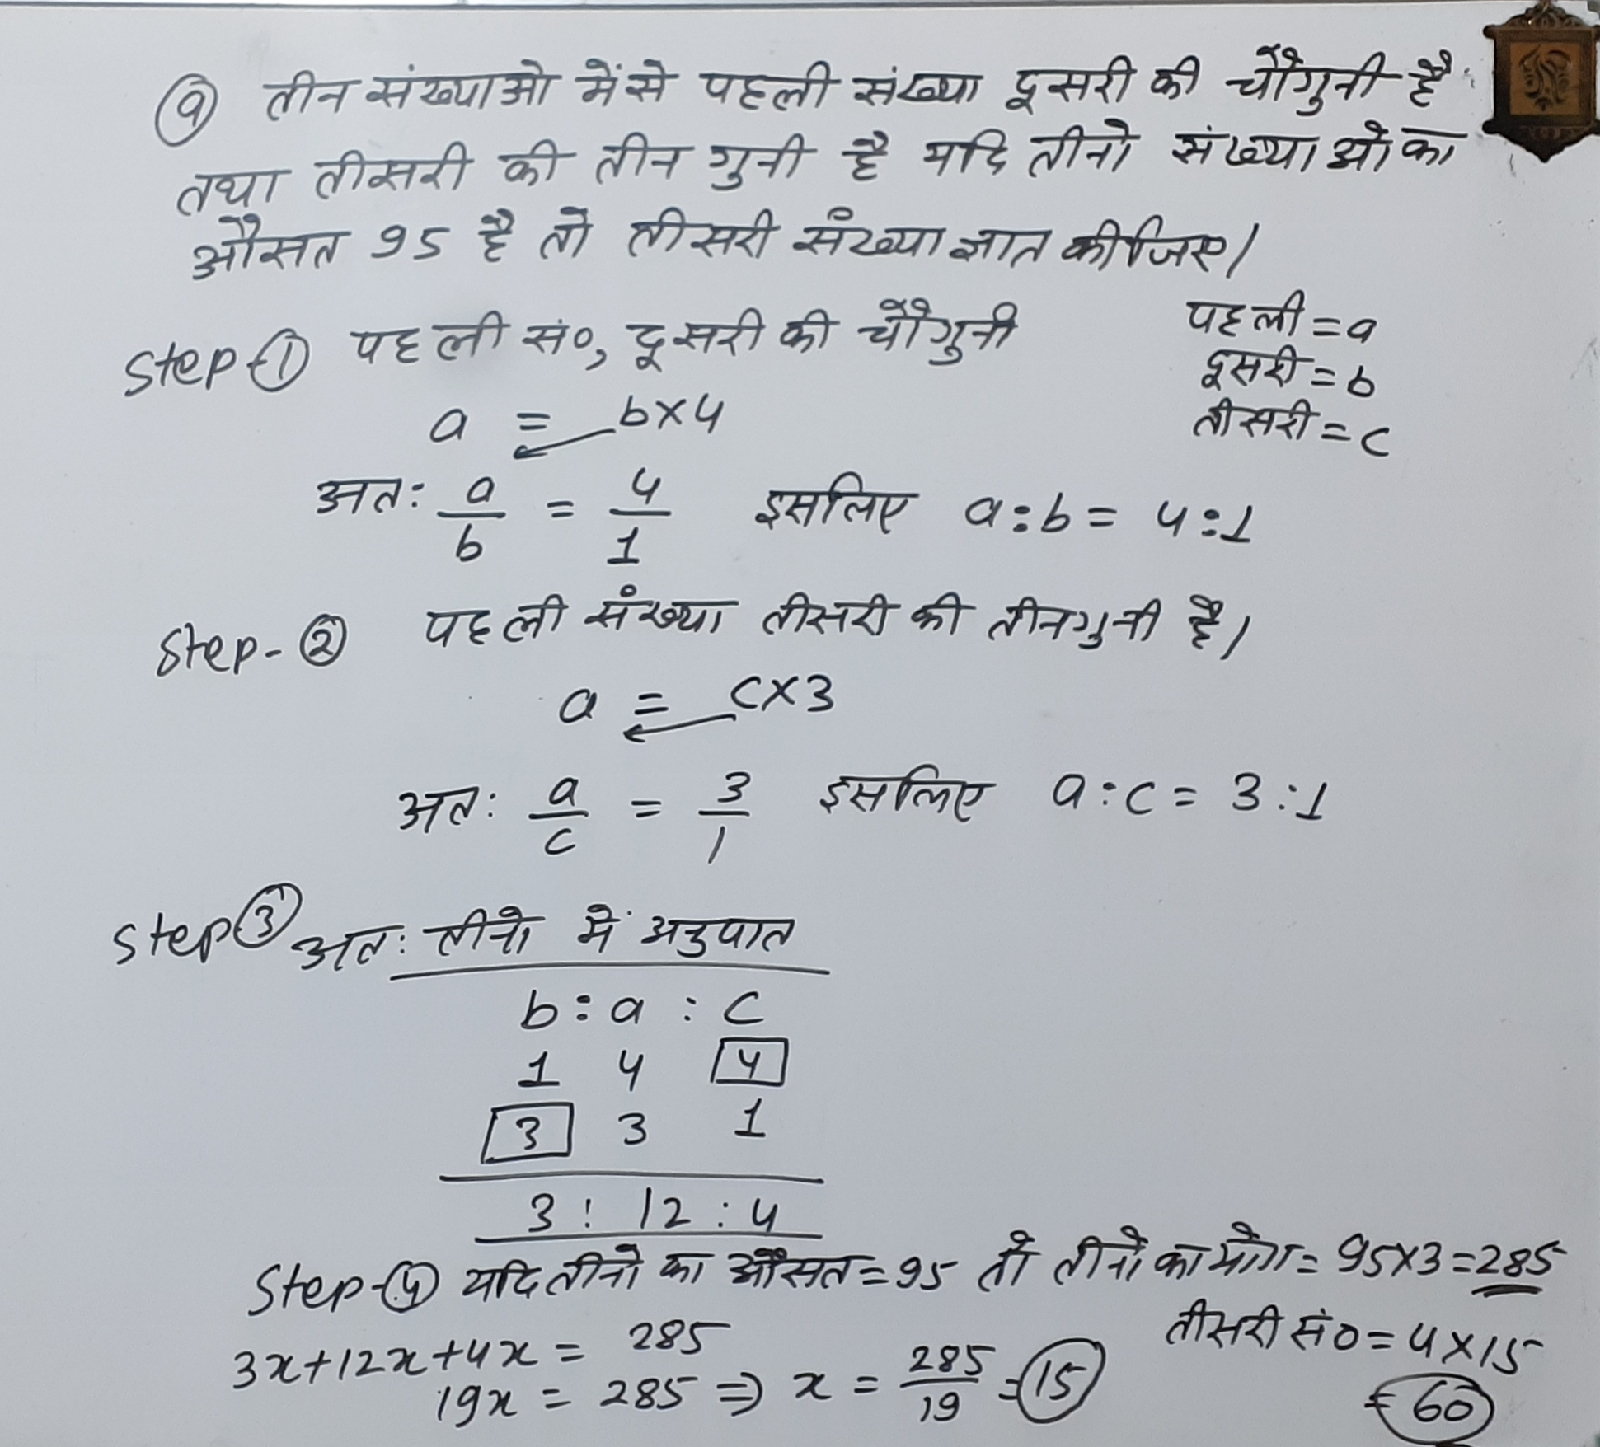 Q तीन संख्याओ में से पहली संख्या दूसरी की चौगुनी है
तथा तीसरी की तीन गुनी है यदि तीनो संख्याओ का
औसत 95 है तो तीसरी संख्या ज्ञात कीजिए।
पहली = a
दूसरी = b
तीसरी = c
Step-① पहली सं०, दूसरी की चौगुनी
a = b×4
अतः a/b = 4/1 इसलिए a:b = 4:1
Step-② पहली संख्या तीसरी की तीनगुनी है।
a = c×3
अतः a/c = 3/1 इसलिए a:c = 3:1
Step ③ अतः तीनो में अनुपात
b : a : c
1 4 4
3 3 1
3 : 12 : 4
Step-④ यदि तीनो का औसत = 95 तो तीनो का योग = 95×3 = 285
3x+12x+4x = 285
19x = 285 ⇒ x = 285/19 = 15
तीसरी सं० = 4×15
= 60